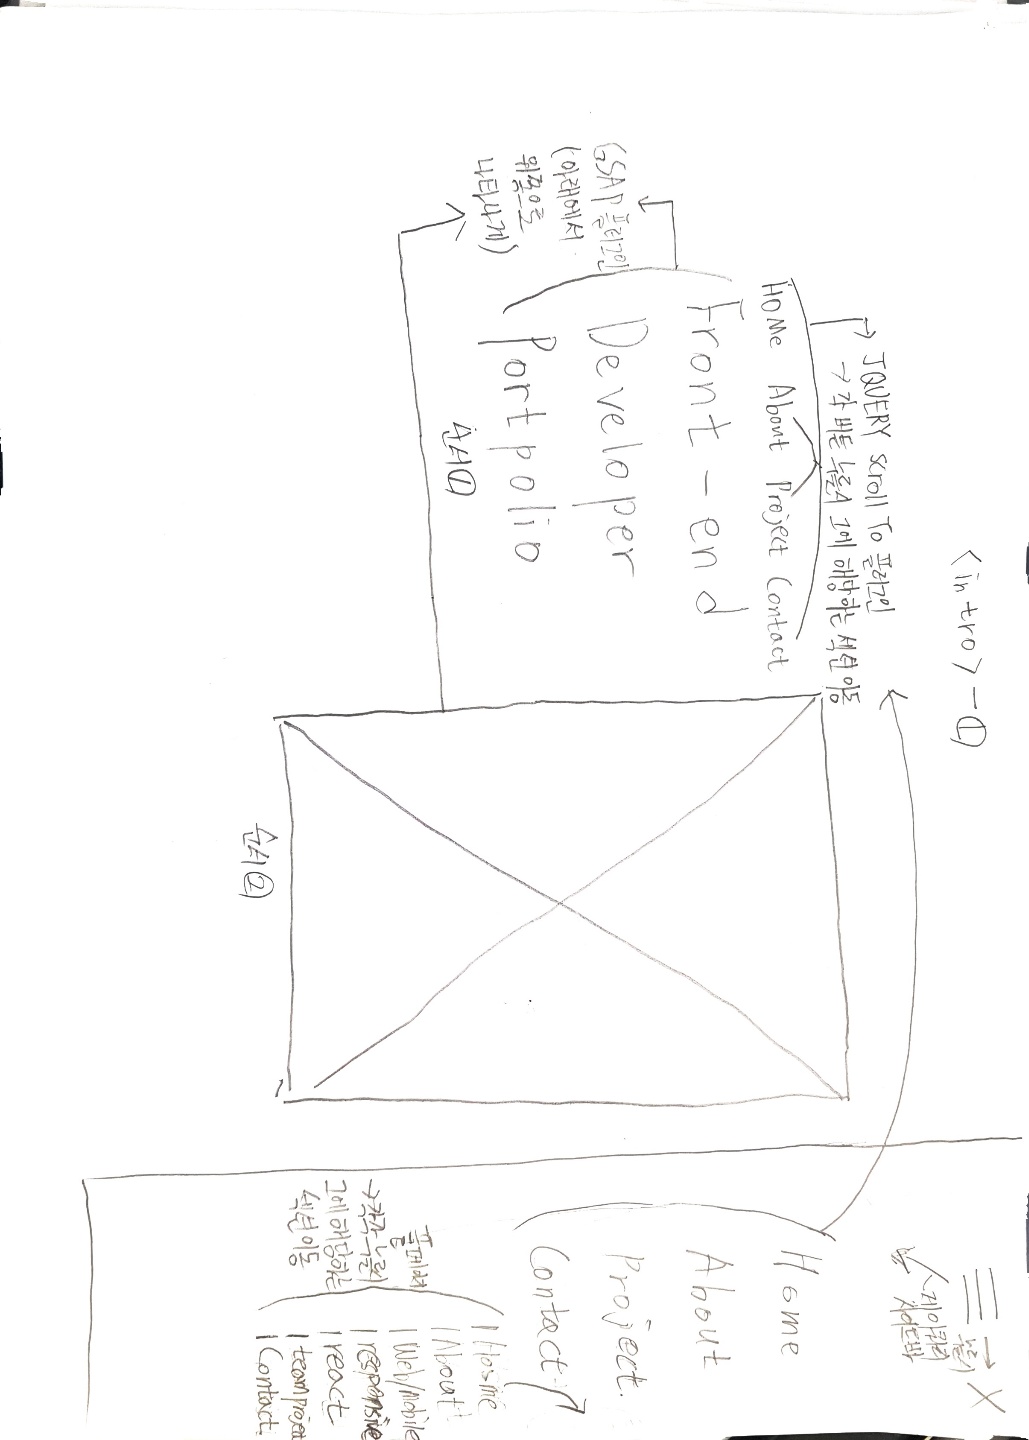 <intro> - ①
JQUERY scroll To 플러그인
→ 각 버튼 누를시 그에 해당하는 섹션 이동
HOMe About Project Contact
Front-end
Developer
Portpolio
순서①
GSAP 플러그인
(아래에서
위쪽으로
나타나게)
순서②
→ X
누를시
제이쿼리
사이드바
Home
About
Project.
Contact
→ 각각 누를시
그에 해당하는
섹션 이동
| Home
| About
| Web/Mobile
| responsive
| react
| team project
| Contact.